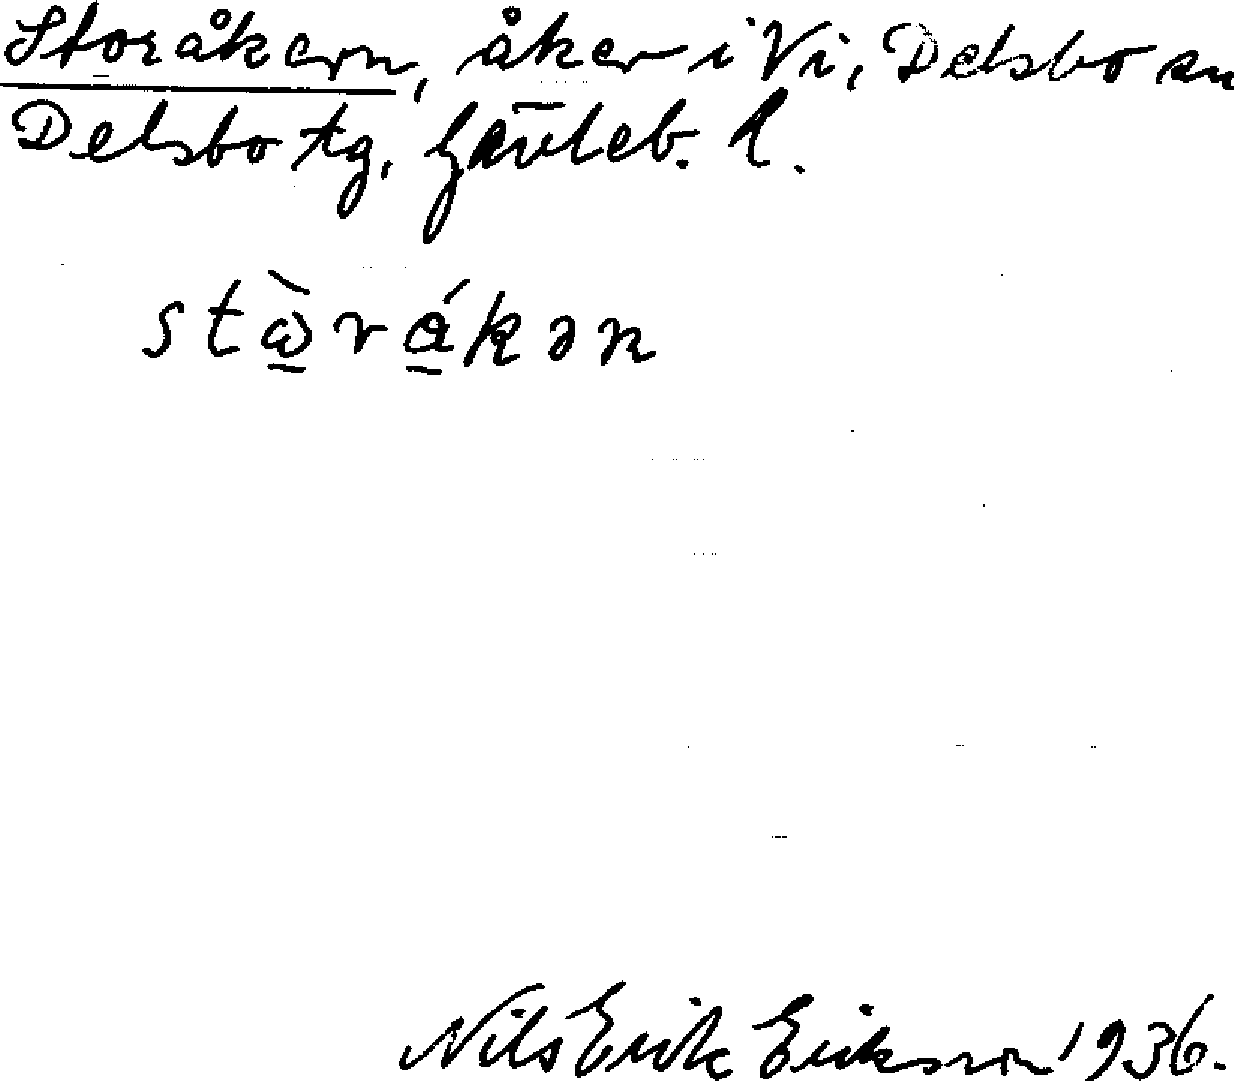 Storåkern, åker i Vi, Delsbo sn
Delsbo tg, Gävleb. l.
stὼ̱rά̱kən
Nils Erik Eriksson 1936.